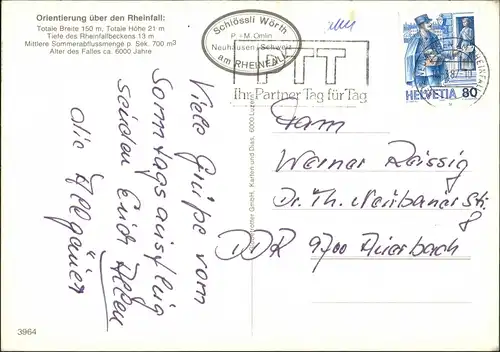 Orientierung über den Rheinfall:
Totale Breite 150 m, Totale Höhe 21 m
Tiefe des Rheinfallbeckens 13 m
Mittlere Sommerabflussmenge p. Sek. 700 m³
Alter des Falles ca. 6000 Jahre
Schlössli Wörth
P. + M. Omlin
Neuhausen / Schweiz
am RHEINFALL
PTT
Ihr Partner Tag für Tag
HELVETIA 80
Viele Grüße vom
Sonntagsausflug
senden Euch Allen
die Allgäuer
Fam
Werner Reissig
Dr. Th. Neubauer Str. 8
DDR 9700 Auerbach
3964